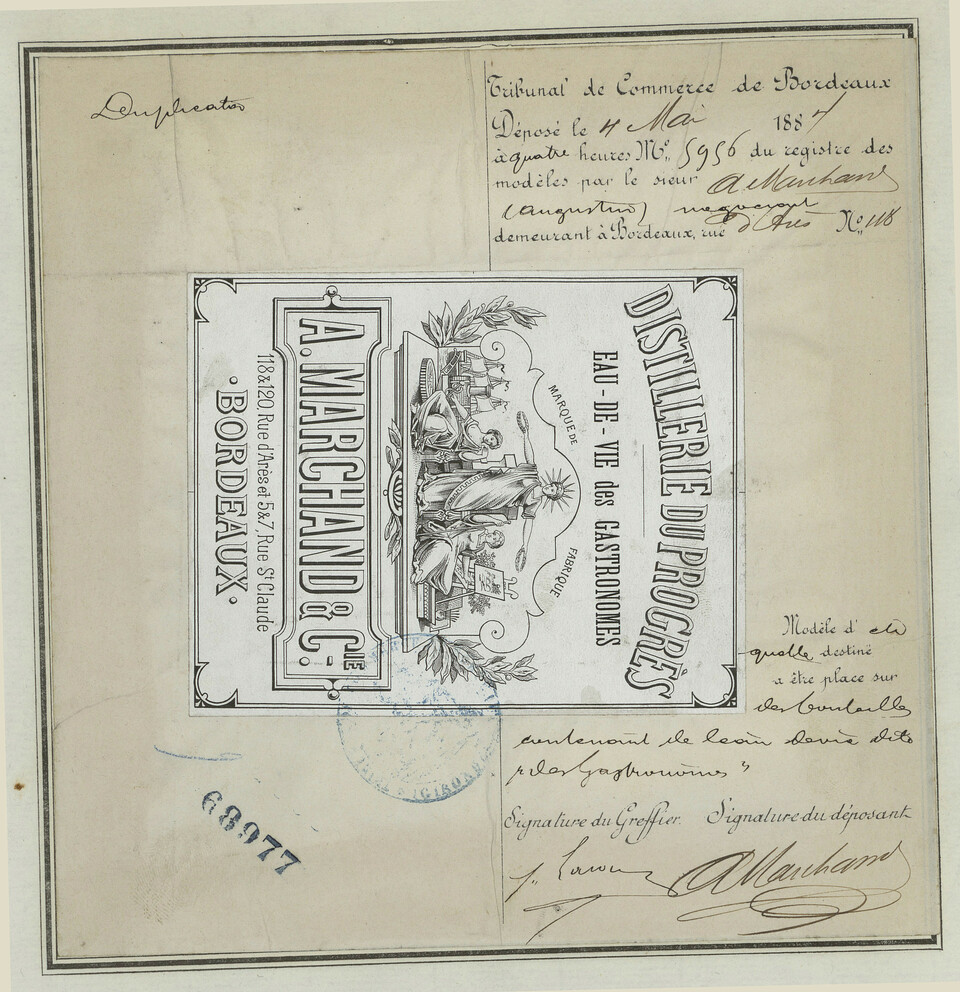 Duplicata
Tribunal de Commerce de Bordeaux
Déposé le 4 Mai 1887
à quatre heures N° 5956 du registre des
modèles par le sieur A Marchand
(Augustin) négociant
demeurant à Bordeaux, rue d'Arès N° 118
DISTILLERIE DU PROGRÈS
EAU-DE-VIE des GASTRONOMES
MARQUE DE FABRIQUE
A. MARCHAND & CIE
118 & 120, Rue d'Arès et 5 & 7, Rue St Claude
• BORDEAUX •
Modèle d' éti
quette destiné
a être place sur
des bouteilles
contenant de l'eau de vie dite
"des Gastronomes"
Signature du Greffier. Signature du déposant
A Marchand
GIRONDE
68977